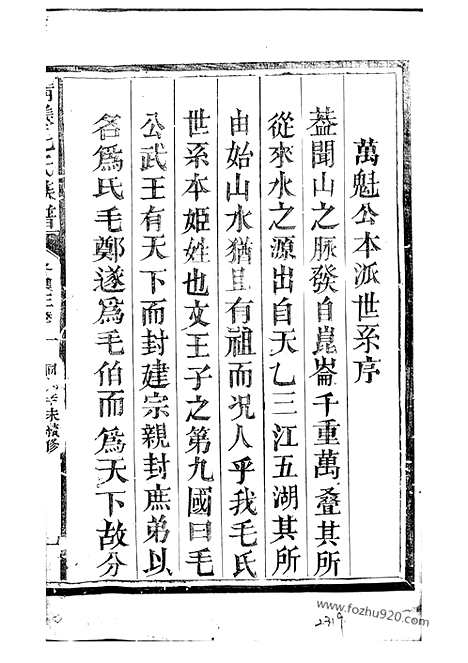 萬魁公本派世系序
蓋聞山之脉發自崑崙千重萬叠其所
從來水之源出自天乙三江五湖其所
由始山水猶且有祖而况人乎我毛氏
世系本姬姓也文王子之第九國曰毛
公武王有天下而封建宗親封庶弟以
名爲氏毛鄭遂爲毛伯而爲天下故分
毛氏族譜
續修
2319
www.fozhu920.com